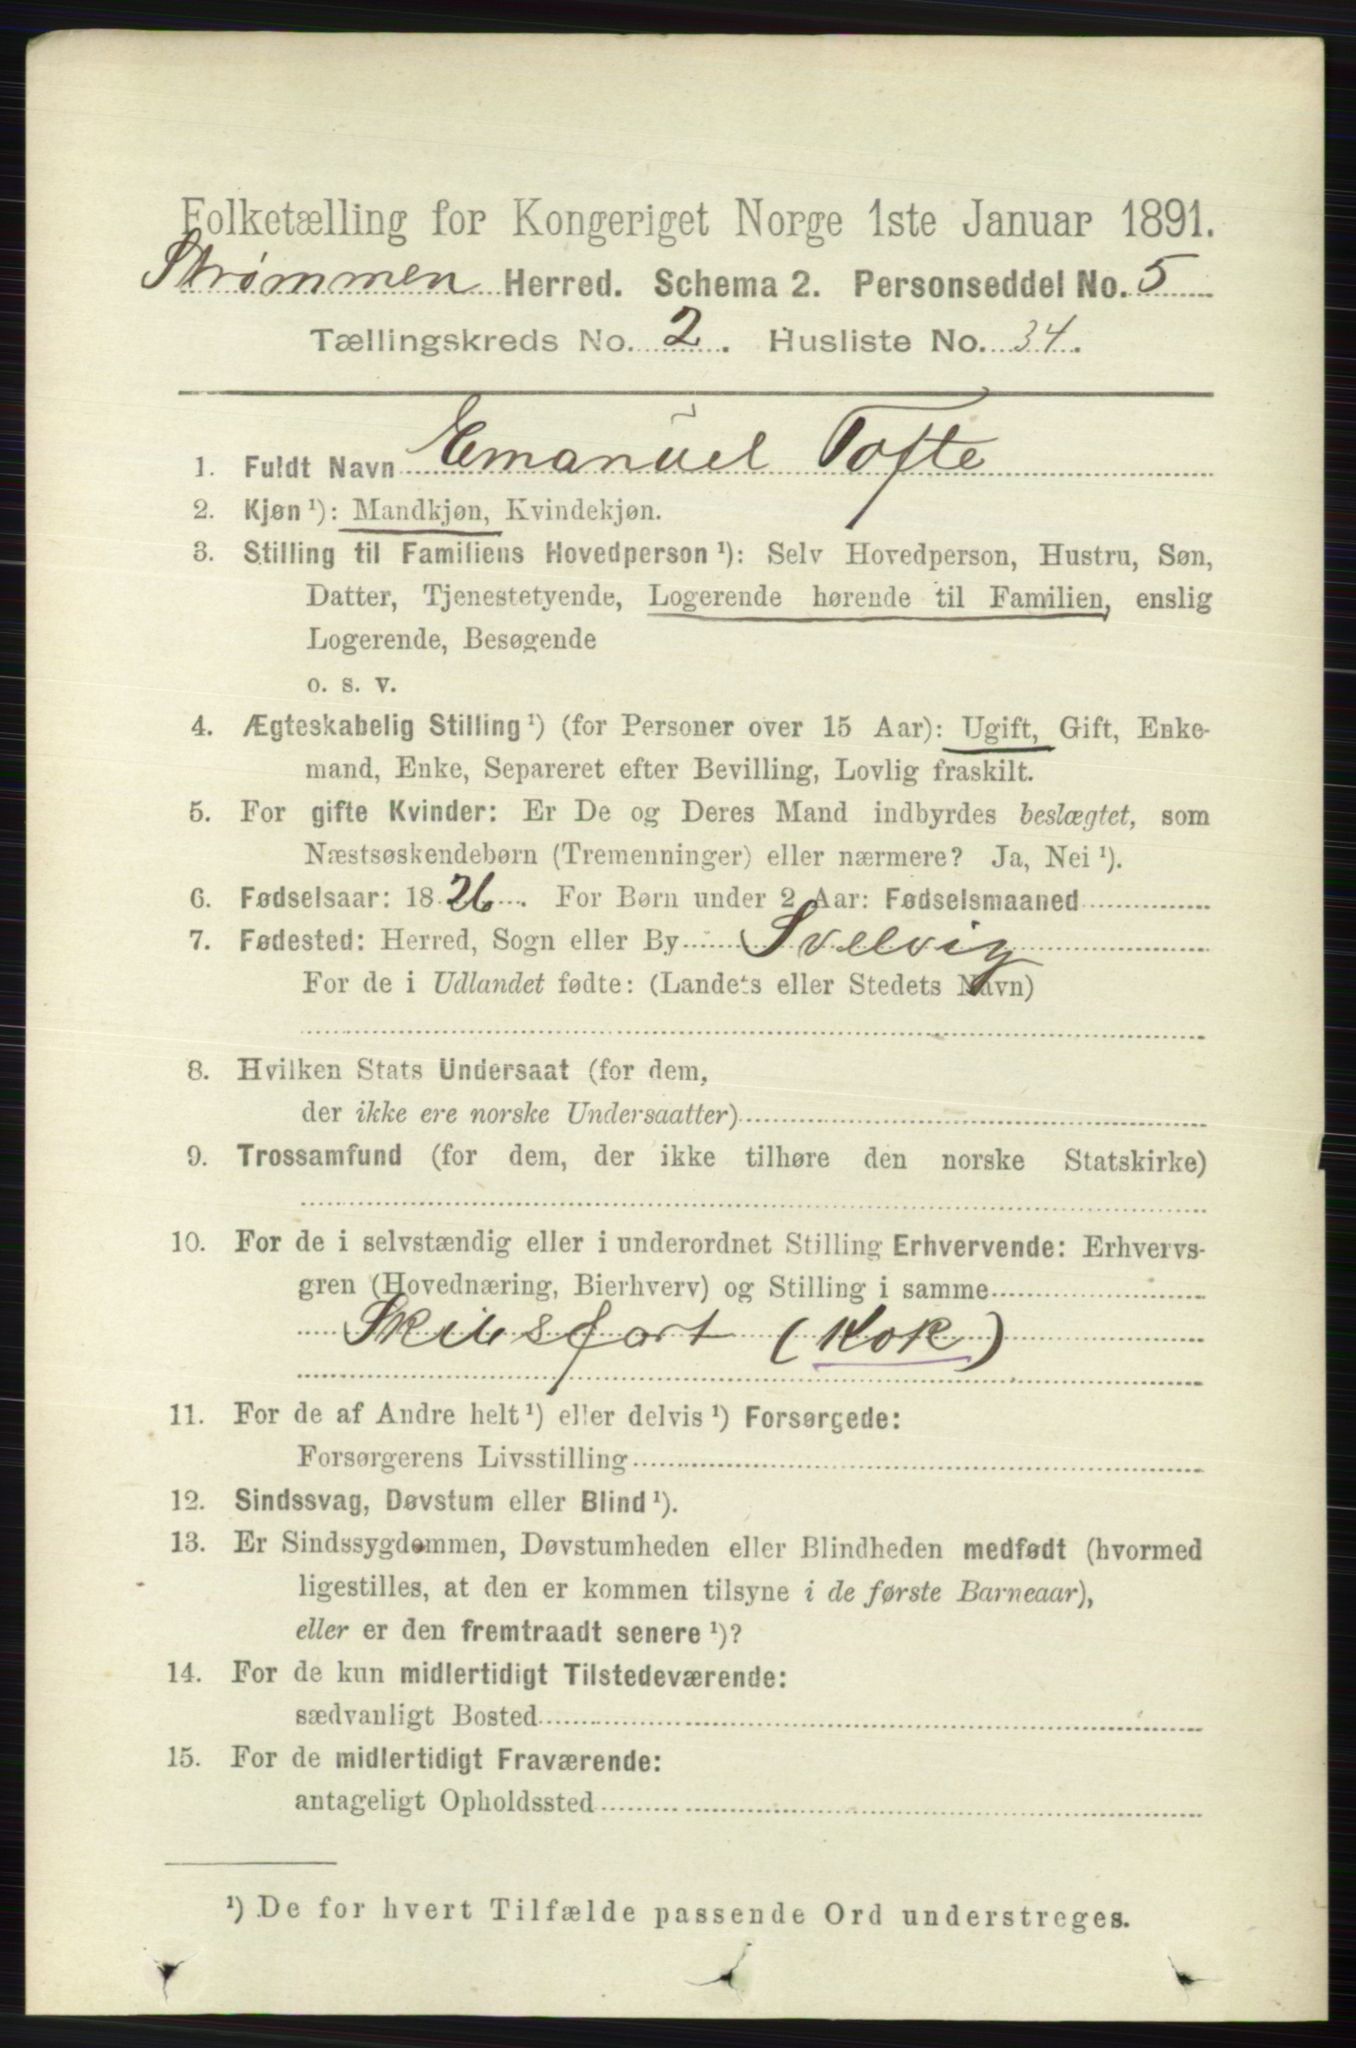 Folketælling for Kongeriget Norge 1ste Januar 1891.
Strømmen Herred. Schema 2. Personseddel No. 5
Tællingskreds No. 2. Husliste No. 34.
1. Fuldt Navn Emanuel Tofte
2. Kjøn ¹): Mandkjøn, Kvindekjøn.
3. Stilling til Familiens Hovedperson ¹): Selv Hovedperson, Hustru, Søn,
Datter, Tjenestetyende, Logerende hørende til Familien, enslig
Logerende, Besøgende
o. s. v.
4. Ægteskabelig Stilling ¹) (for Personer over 15 Aar): Ugift, Gift, Enke-
mand, Enke, Separeret efter Bevilling, Lovlig fraskilt.
5. For gifte Kvinder: Er De og Deres Mand indbyrdes beslægtet, som
Næstsøskendebørn (Tremenninger) eller nærmere? Ja, Nei ¹).
6. Fødselsaar: 1826. For Børn under 2 Aar: Fødselsmaaned
7. Fødested: Herred, Sogn eller By Svelvig
For de i Udlandet fødte: (Landets eller Stedets Navn)
8. Hvilken Stats Undersaat (for dem,
der ikke ere norske Undersaatter)
9. Trossamfund (for dem, der ikke tilhøre den norske Statskirke)
10. For de i selvstændig eller i underordnet Stilling Erhvervende: Erhvervs-
gren (Hovednæring, Bierhverv) og Stilling i samme
Skibsfart (Kok)
11. For de af Andre helt ¹) eller delvis ¹) Forsørgede:
Forsørgerens Livsstilling
12. Sindssvag, Døvstum eller Blind ¹).
13. Er Sindssygdommen, Døvstumheden eller Blindheden medfødt (hvormed
ligestilles, at den er kommen tilsyne i de første Barneaar),
eller er den fremtraadt senere ¹)?
14. For de kun midlertidigt Tilstedeværende:
sædvanligt Bosted
15. For de midlertidigt Fraværende:
antageligt Opholdssted
¹) De for hvert Tilfælde passende Ord understreges.